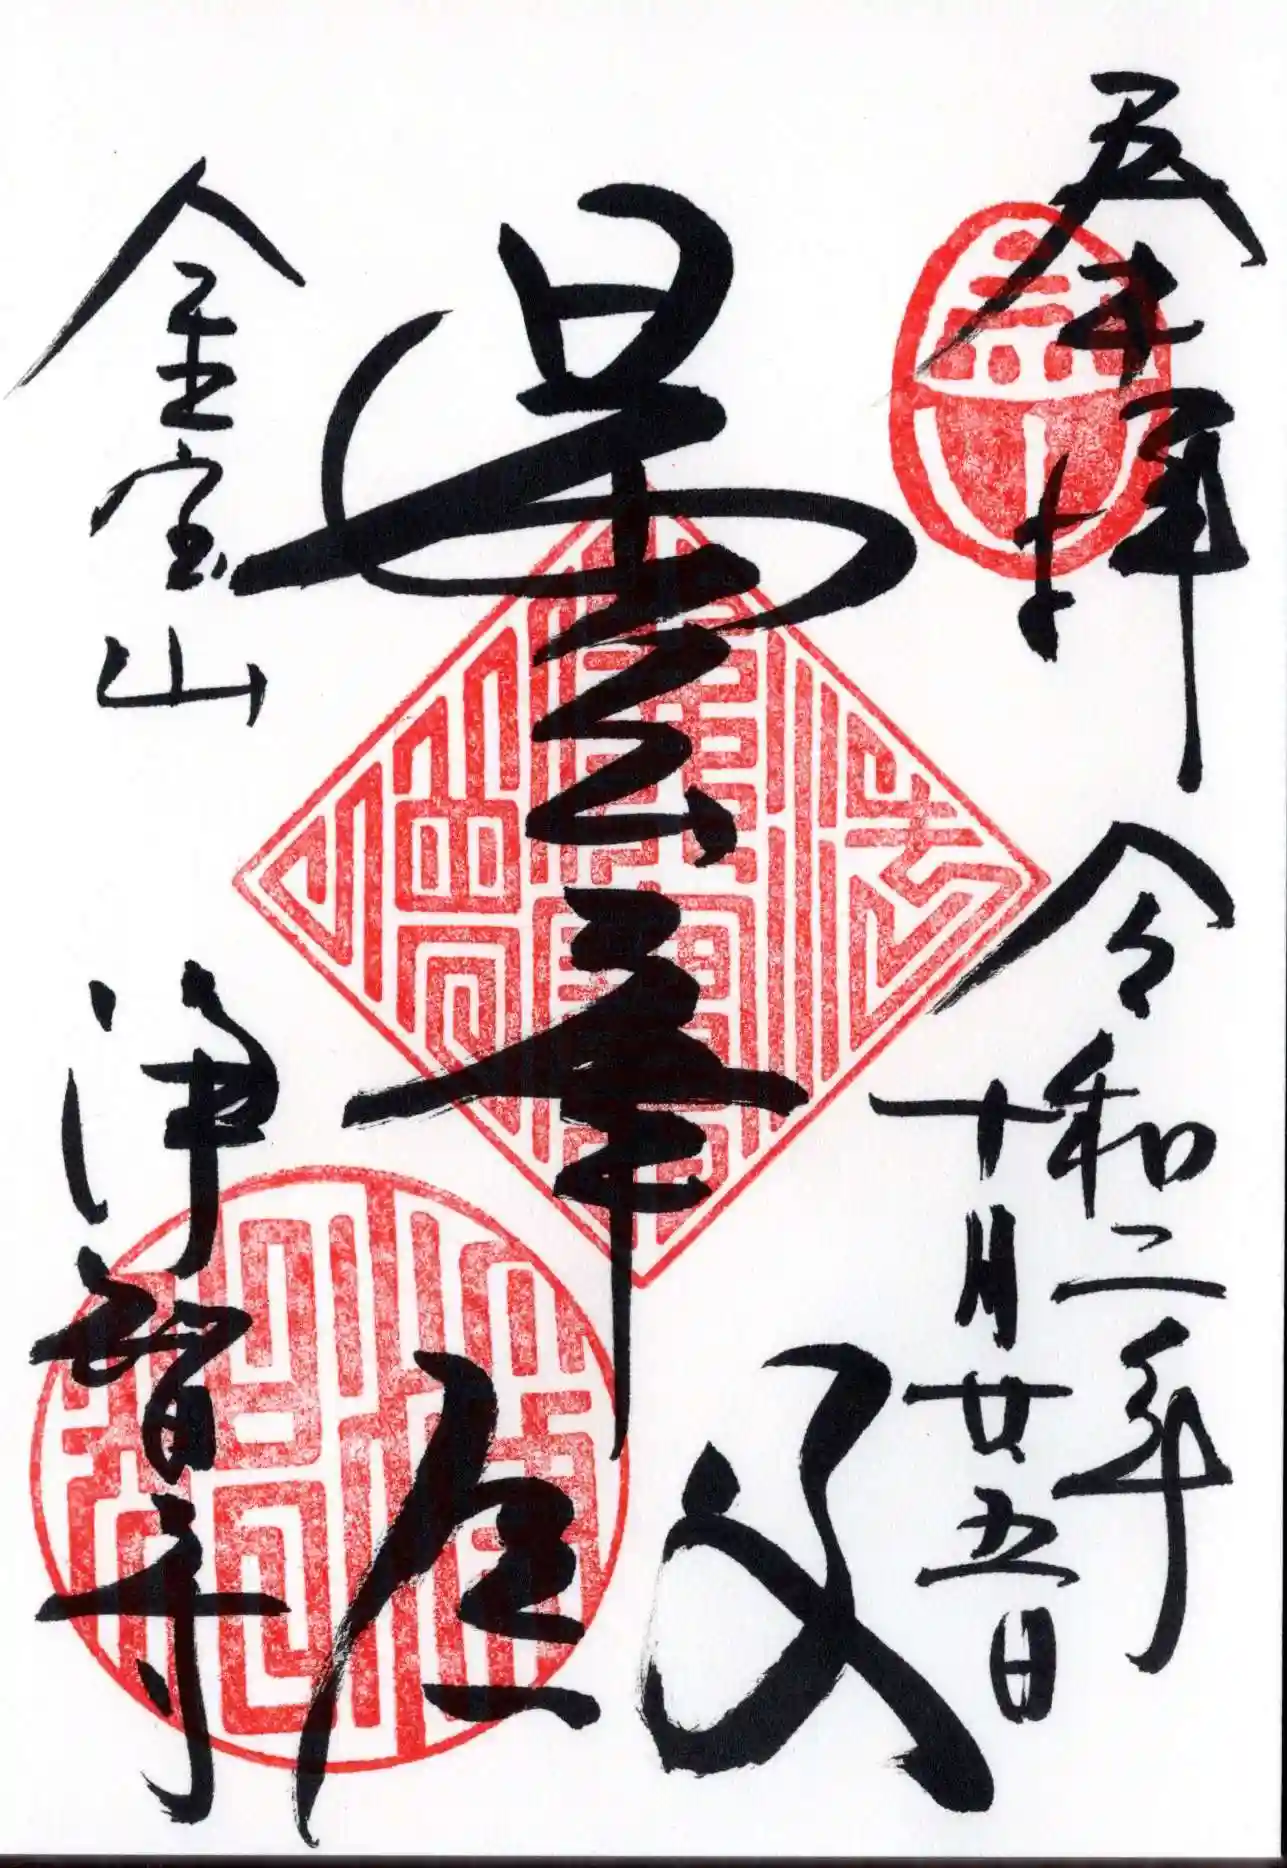 奉拝
令和二年
十月廿五日
曇華殿
金宝山
浄智寺